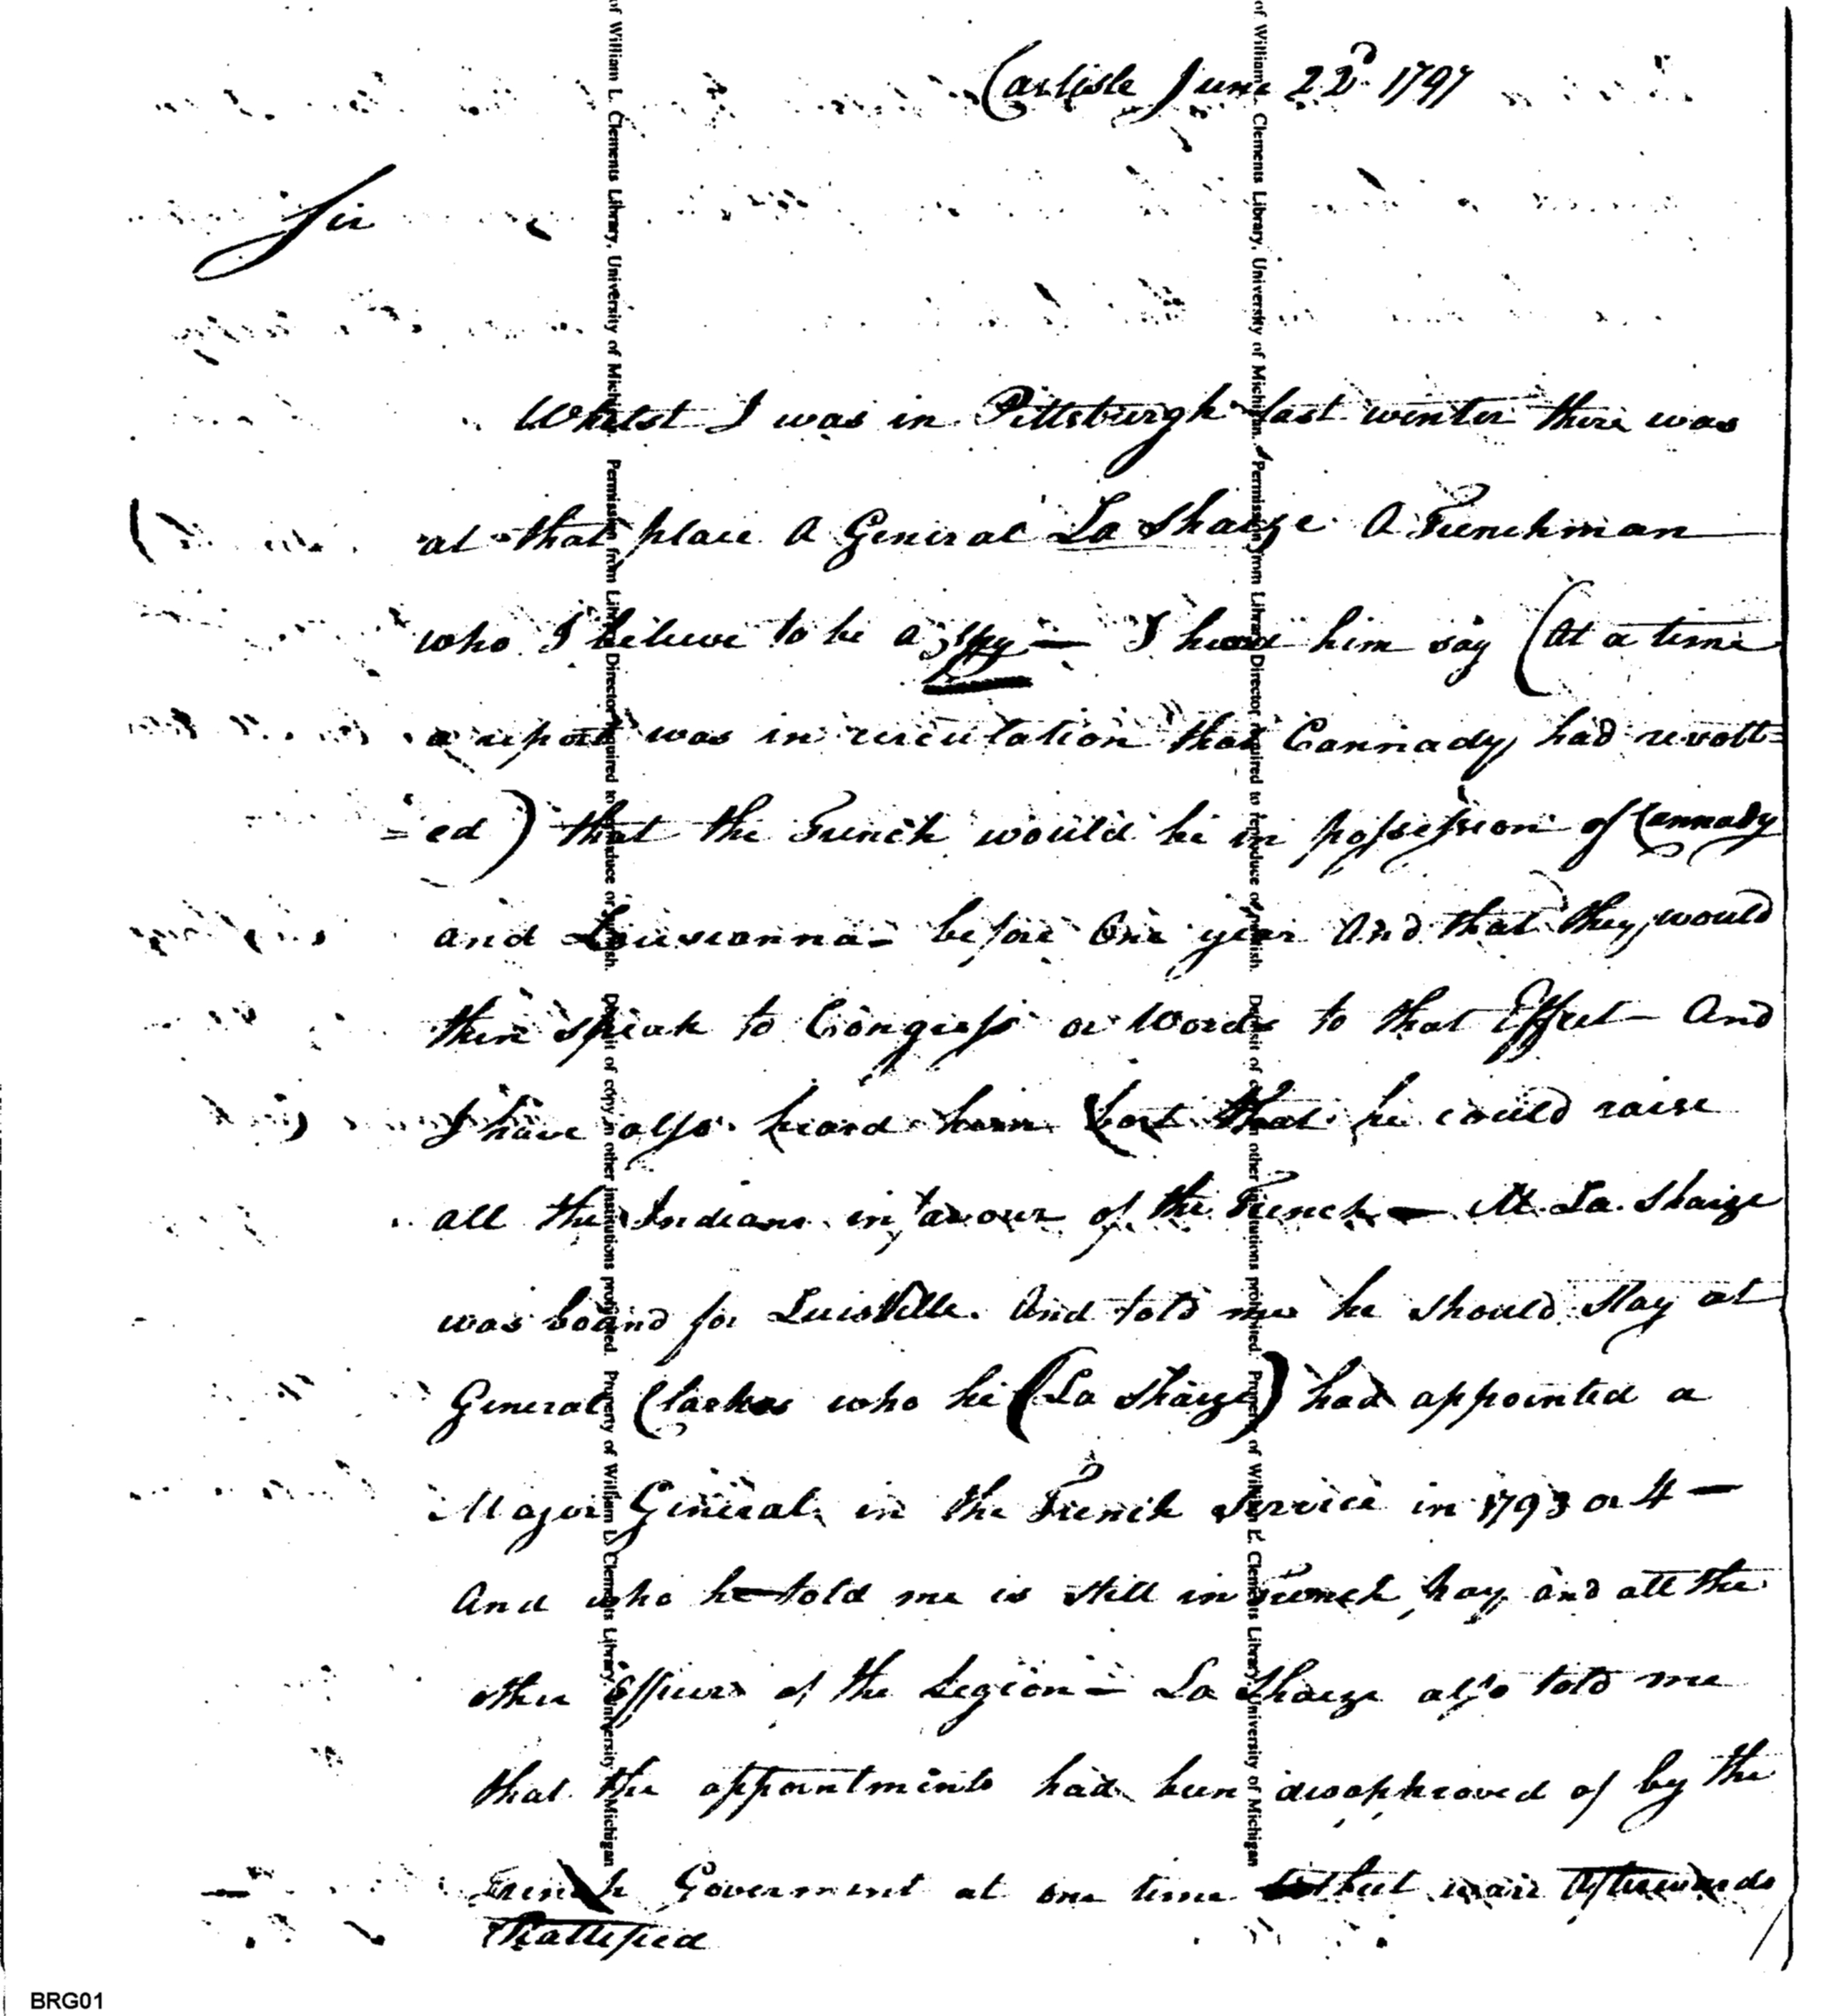 Carlisle June 22d 1797
Sir
Whilst I was in Pittsburgh last winter there was
at that place A General La Shaize A Frenchman
who I believe to be a spy — I heard him say (At a time
a report was in circulation that Cannady had revolt=
=ed) that the French would be in possession of Cannady
and Louisianna - before One year And that they would
then speak to Congress or Words to that Effect — And
I have also heard him bost that he could raise
all the Indians in favour of the French — M. La. Shaize
was boand for Luisville. And told me he should Stay at
General Clarkes who he (La Shaize) had appointed a
Major General in the French Service in 1793 or 4 —
And who he told me is still in French pay and all the
other Officers of the Legion — La Shaize also told me
that the appointments had been disapproved of by the
French Goverment at one time but ware Afterwards
Rattefied
of William L. Clements Library, University of Michigan. Permission from Library Director required to reproduce or publish. Deposit of copy in other institutions prohibited. Property of William L. Clements Library, University of Michigan
of William L. Clements Library, University of Michigan. Permission from Library Director required to reproduce or publish. Deposit of copy in other institutions prohibited. Property of William L. Clements Library, University of Michigan
BRG01